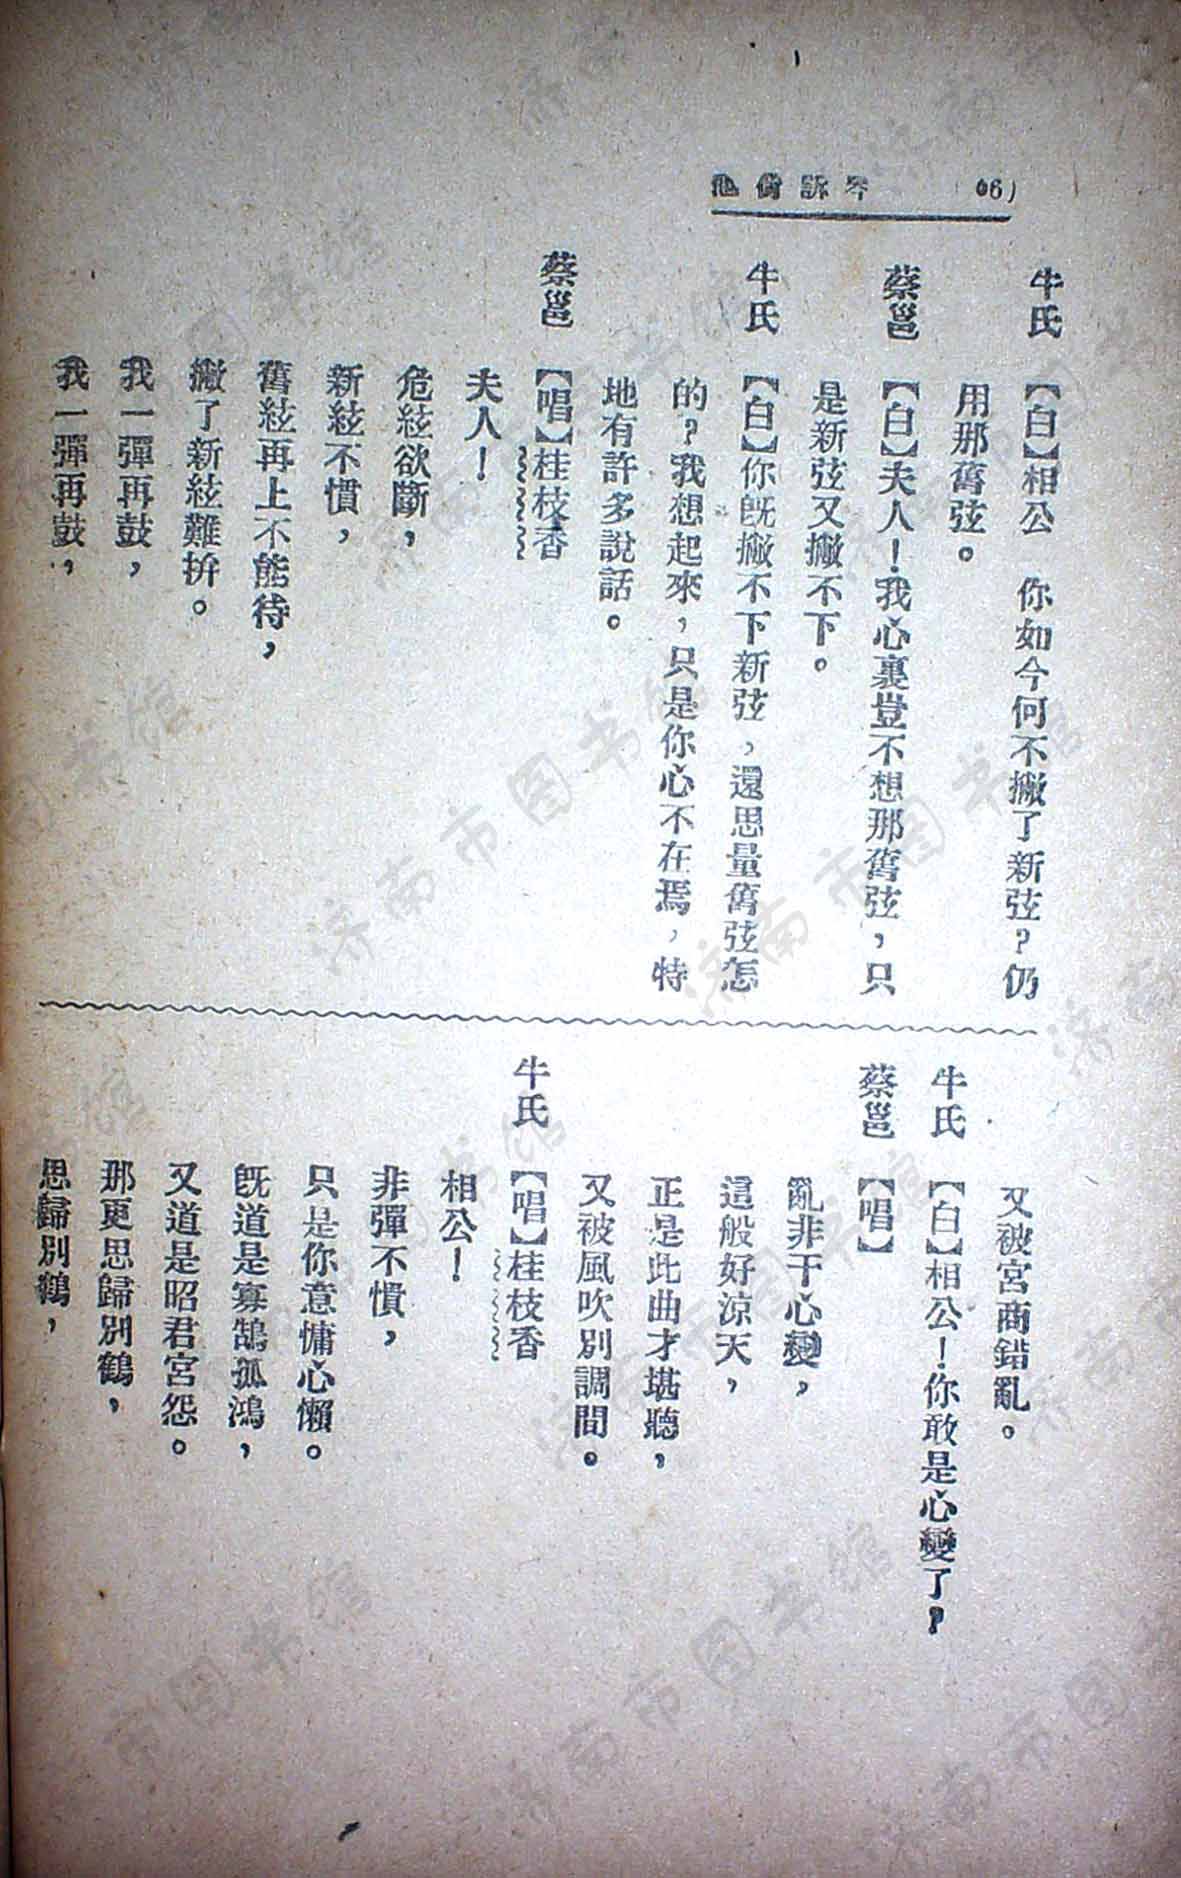 琴訴荷池
(06)
牛氏【白】相公 你如今何不撇了新弦？仍
用那舊弦。
蔡邕【白】夫人！我心裏豈不想那舊弦，只
是新弦又撇不下。
牛氏【白】你旣撇不下新弦，還思量舊弦怎
的？我想起來，只是你心不在焉，特
地有許多說話。
蔡邕【唱】桂枝香
夫人！
危絃欲斷，
新絃不慣，
舊絃再上不能待，
撇了新絃難拚。
我一彈再鼓，
我一彈再鼓，
又被宮商錯亂。
牛氏【白】相公！你敢是心變了？
蔡邕【唱】
亂非干心變，
這般好涼天，
正是此曲才堪聽，
又被風吹別調間。
牛氏【唱】桂枝香
相公！
非彈不慣，
只是你意慵心懶。
旣道是寡鵠孤鴻，
又道是昭君宮怨。
那更思歸別鶴，
思歸別鶴，
济南市图书馆